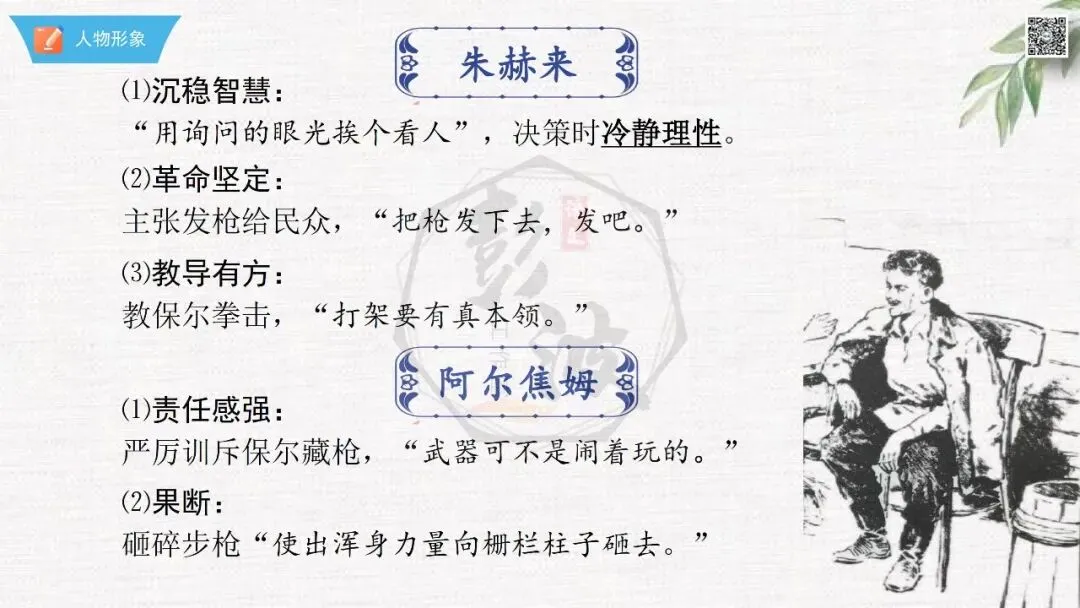 人物形象
朱赫来
⑴沉稳智慧：
“用询问的眼光挨个看人”，决策时冷静理性。
⑵革命坚定：
主张发枪给民众，“把枪发下去，发吧。”
⑶教导有方：
教保尔拳击，“打架要有真本领。”
阿尔焦姆
⑴责任感强：
严厉训斥保尔藏枪，“武器可不是闹着玩的。”
⑵果断：
砸碎步枪“使出浑身力量向栅栏柱子砸去。”